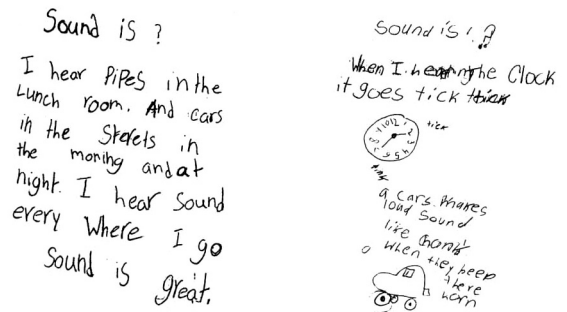 Sound is ?
I hear PiPes in the
Lunch room. And cars
in the Sterets in
the moring and at
night. I hear Sound
every where I go
Sound is
great.
Sound is !
When I the Clock
it goes tick
tick
12 1 2 3 4 5 6 7 8 9 10 11
a cars. makes
loud Sound
like
when they beep
there
horn